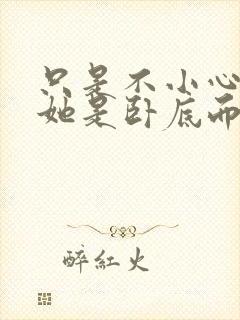 只是不小心
她是卧底而
醉红火